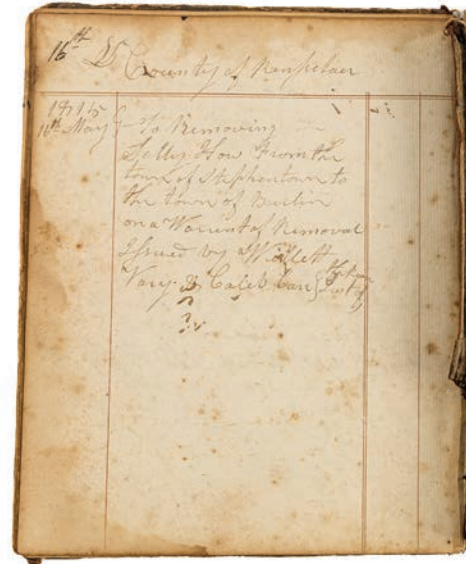 16th Dr County of Renselaer
1815
11th May } To Removing
Polly How From the
town of Stephentown to
the town of Berlin
on a Warrent of Removal
Issued by Willett
Vary & Caleb Carr